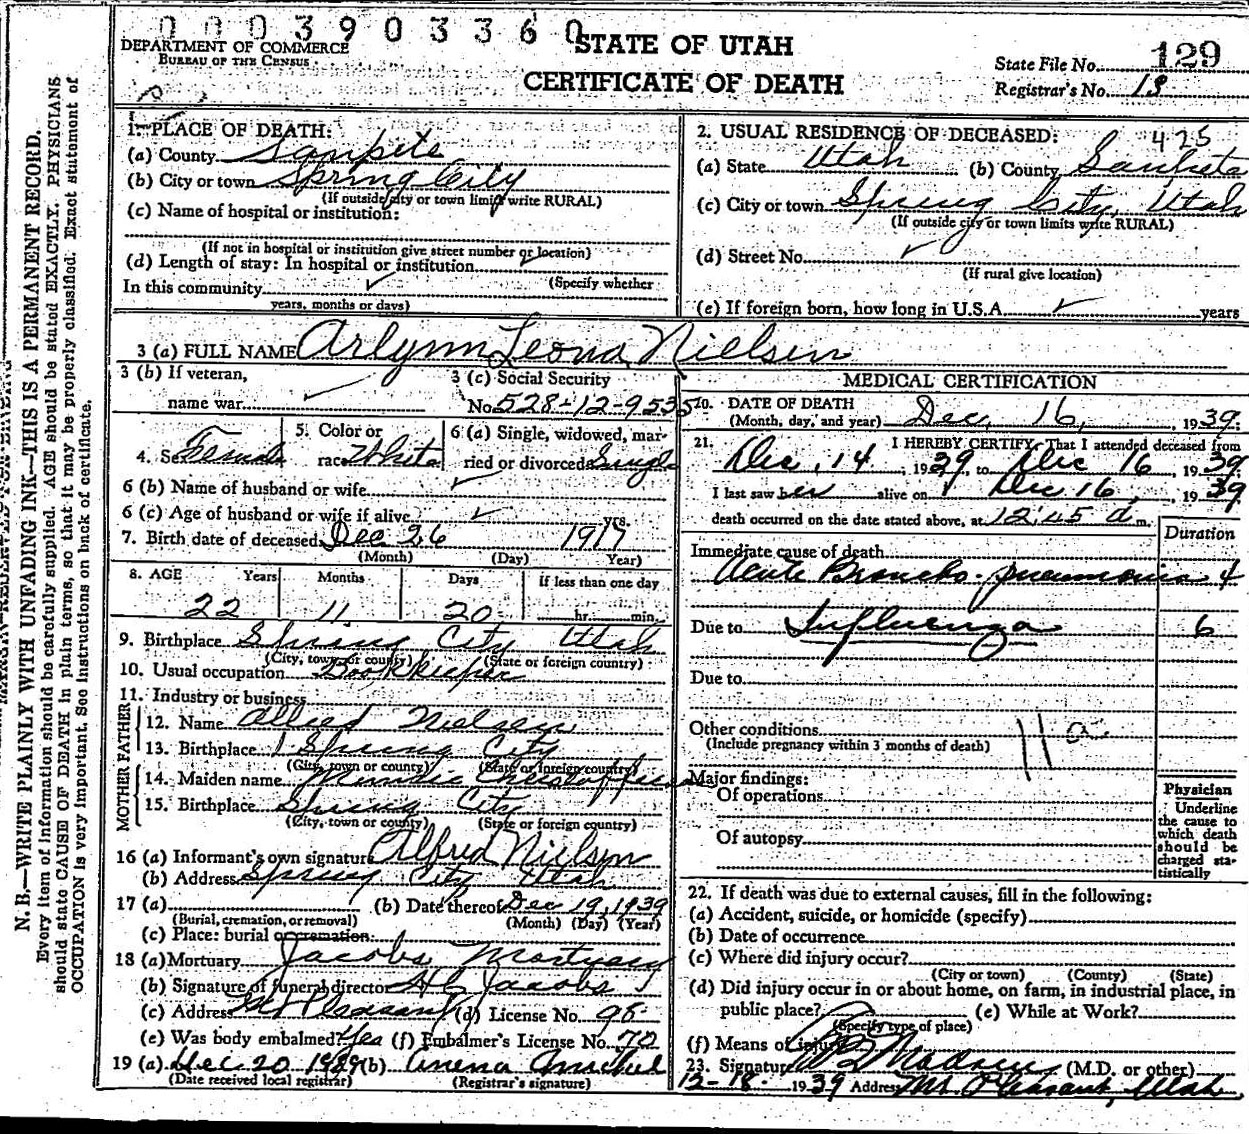 0003903360
DEPARTMENT OF COMMERCE
BUREAU OF THE CENSUS
STATE OF UTAH
CERTIFICATE OF DEATH
State File No. 129
Registrar's No. 13
N. B.—WRITE PLAINLY WITH UNFADING INK—THIS IS A PERMANENT RECORD.
Every item of information should be carefully supplied. AGE should be stated EXACTLY. PHYSICIANS
should state CAUSE OF DEATH in plain terms, so that it may be properly classified. Exact statement of
OCCUPATION is very important. See instructions on back of certificate.
1. PLACE OF DEATH:
(a) County Sanpete
(b) City or town Spring City
(If outside city or town limits write RURAL)
(c) Name of hospital or institution:
(If not in hospital or institution give street number or location)
(d) Length of stay: In hospital or institution
(Specify whether
In this community
years, months or days)
2. USUAL RESIDENCE OF DECEASED: 425
(a) State Utah (b) County Sanpete
(c) City or town Spring City, Utah
(If outside city or town limits write RURAL)
(d) Street No.
(If rural give location)
(e) If foreign born, how long in U.S.A. years
3 (a) FULL NAME Arlynn Leona Nielsen
3 (b) If veteran,
name war
3 (c) Social Security
No. 528-12-9535
4. Sex Female
5. Color or
race White
6 (a) Single, widowed, mar-
ried or divorced Single
6 (b) Name of husband or wife
6 (c) Age of husband or wife if alive yrs.
7. Birth date of deceased Dec 26 1917
(Month) (Day) Year)
8. AGE Years Months Days If less than one day
22 11 20 hr. min.
9. Birthplace Spring City Utah
(City, town or county) (State or foreign country)
10. Usual occupation Bookkeeper
11. Industry or business
FATHER
12. Name Alfred Nielsen
13. Birthplace Spring City
(City, town or county) (State or foreign country)
MOTHER
14. Maiden name Christoffersen
15. Birthplace Spring City
(City, town or county) (State or foreign country)
16 (a) Informant's own signature Alfred Nielsen
(b) Address Spring City Utah
17 (a) (b) Date thereof Dec 19, 1939
(Burial, cremation, or removal) (Month) (Day) (Year)
(c) Place: burial or cremation:
18 (a) Mortuary Jacobs Mortuary
(b) Signature of funeral director Jacobs
(c) Address Mt Pleasant (d) License No. 95
(e) Was body embalmed? Yes (f) Embalmer's License No. 72
19 (a) Dec 20 1939 (b)
(Date received local registrar) (Registrar's signature)
MEDICAL CERTIFICATION
20. DATE OF DEATH
(Month, day, and year) Dec, 16, 1939;
21. I HEREBY CERTIFY, That I attended deceased from
Dec, 14, 1939, to Dec 16, 1939
I last saw her alive on Dec 16, 1939
death occurred on the date stated above, at 12:45 m.
Duration
Immediate cause of death
Acute Broncho-pneumonia 4
Due to Influenza 6
Due to
Other conditions
(Include pregnancy within 3 months of death)
11 a
Major findings:
Of operations
Of autopsy
Physician
Underline
the cause to
which death
should be
charged sta-
tistically
22. If death was due to external causes, fill in the following:
(a) Accident, suicide, or homicide (specify)
(b) Date of occurrence
(c) Where did injury occur?
(City or town) (County) (State)
(d) Did injury occur in or about home, on farm, in industrial place, in
public place? (e) While at Work?
(Specify type of place)
(f) Means of injury
23. Signature Madsen (M.D. or other)
12-18- 1939 Address Mt. Pleasant, Utah